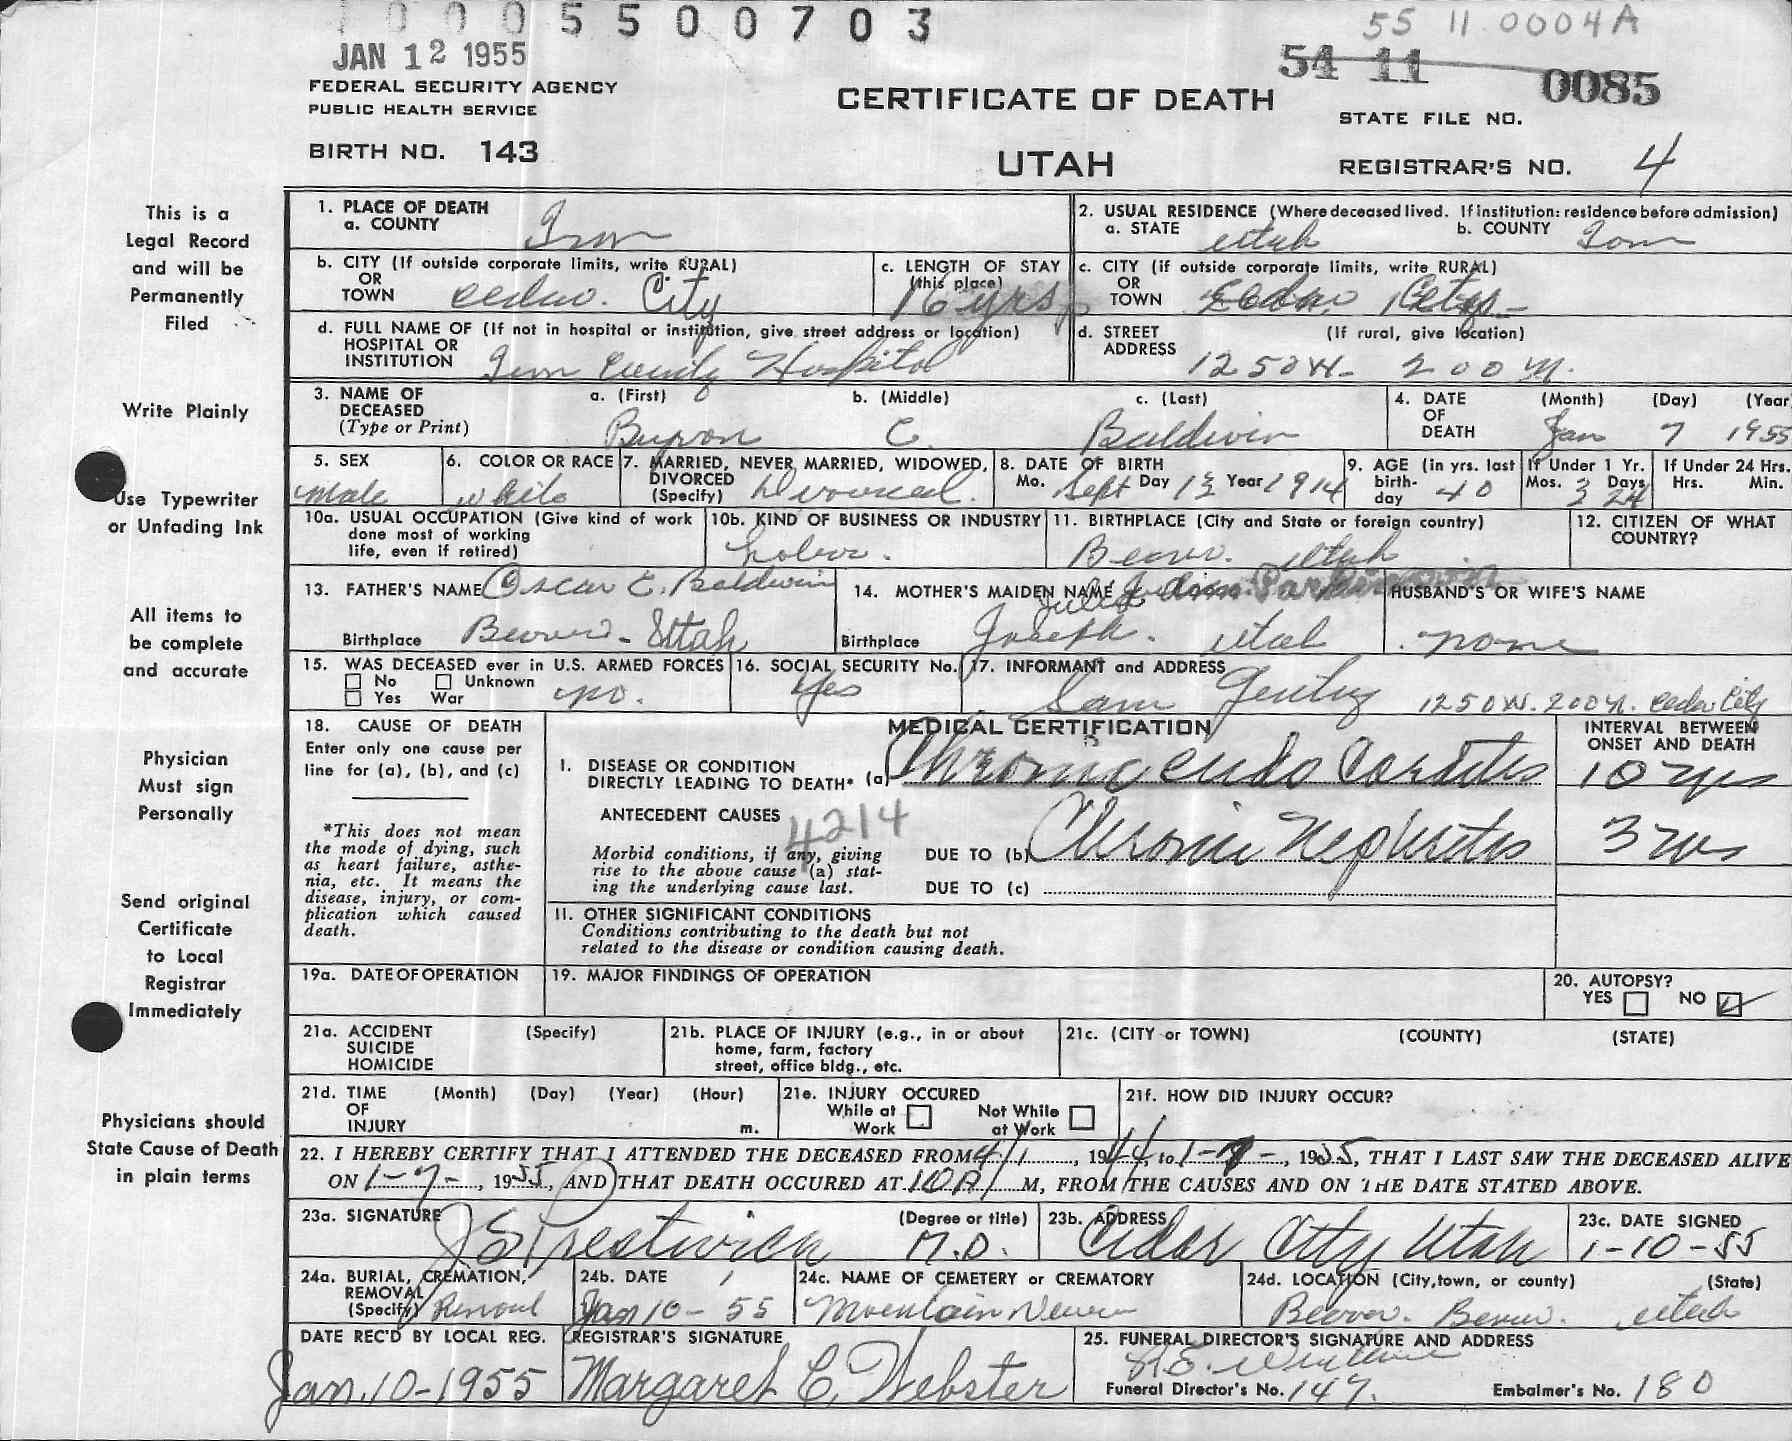 0 0 0 5 5 0 0 7 0 3
55 11 0004A
JAN 12 1955
54 11 0085
FEDERAL SECURITY AGENCY
PUBLIC HEALTH SERVICE
CERTIFICATE OF DEATH
STATE FILE NO.
BIRTH NO. 143
UTAH
REGISTRAR'S NO. 4
This is a
Legal Record
and will be
Permanently
Filed
Write Plainly
Use Typewriter
or Unfading Ink
All items to
be complete
and accurate
Physician
Must sign
Personally
Send original
Certificate
to Local
Registrar
Immediately
Physicians should
State Cause of Death
in plain terms
1. PLACE OF DEATH
a. COUNTY Iron
2. USUAL RESIDENCE (Where deceased lived. If institution: residence before admission)
a. STATE Utah b. COUNTY Iron
b. CITY (If outside corporate limits, write RURAL)
OR
TOWN Cedar City
c. LENGTH OF STAY
(this place)
16 yrs
c. CITY (if outside corporate limits, write RURAL)
OR
TOWN Cedar City
d. FULL NAME OF (If not in hospital or institution, give street address or location)
HOSPITAL OR
INSTITUTION Iron County Hospital
d. STREET (If rural, give location)
ADDRESS 1250 W. 200 N.
3. NAME OF
DECEASED
(Type or Print)
a. (First) b. (Middle) c. (Last)
Byron C. Baldwin
4. DATE (Month) (Day) (Year
OF
DEATH Jan 7 1955
5. SEX
Male
6. COLOR OR RACE
white
7. MARRIED, NEVER MARRIED, WIDOWED,
DIVORCED
(Specify) Divorced.
8. DATE OF BIRTH
Mo. Sept Day 13 Year 1914
9. AGE (in yrs. last
birth-
day 40
If Under 1 Yr.
Mos. Days
3 24
If Under 24 Hrs.
Hrs. Min.
10a. USUAL OCCUPATION (Give kind of work
done most of working
life, even if retired)
10b. KIND OF BUSINESS OR INDUSTRY
Labor.
11. BIRTHPLACE (City and State or foreign country)
Beaver. Utah
12. CITIZEN OF WHAT
COUNTRY?
13. FATHER'S NAME Oscar C. Baldwin
Birthplace Beaver - Utah
14. MOTHER'S MAIDEN NAME Julia Ann Parkinson
Birthplace Joseph. Utah
HUSBAND'S OR WIFE'S NAME
none
15. WAS DECEASED ever in U.S. ARMED FORCES
No Unknown
Yes War
no.
16. SOCIAL SECURITY No.
Yes
17. INFORMANT and ADDRESS
Sam Gentry 1250 W. 200 N. Cedar City
18. CAUSE OF DEATH
Enter only one cause per
line for (a), (b), and (c)
*This does not mean
the mode of dying, such
as heart failure, asthe-
nia, etc. It means the
disease, injury, or com-
plication which caused
death.
MEDICAL CERTIFICATION
INTERVAL BETWEEN
ONSET AND DEATH
I. DISEASE OR CONDITION
DIRECTLY LEADING TO DEATH* (a) Chronic endo Carditis 10 yrs
ANTECEDENT CAUSES 4214
Morbid conditions, if any, giving
rise to the above cause (a) stat-
ing the underlying cause last.
DUE TO (b) Chronic Nephritis 3 yrs
DUE TO (c)
II. OTHER SIGNIFICANT CONDITIONS
Conditions contributing to the death but not
related to the disease or condition causing death.
19a. DATE OF OPERATION
19. MAJOR FINDINGS OF OPERATION
20. AUTOPSY?
YES NO
21a. ACCIDENT (Specify)
SUICIDE
HOMICIDE
21b. PLACE OF INJURY (e.g., in or about
home, farm, factory
street, office bldg., etc.
21c. (CITY or TOWN) (COUNTY) (STATE)
21d. TIME (Month) (Day) (Year) (Hour)
OF
INJURY m.
21e. INJURY OCCURED
While at Not While
Work at Work
21f. HOW DID INJURY OCCUR?
22. I HEREBY CERTIFY THAT I ATTENDED THE DECEASED FROM 4/1, 1944, to 1-7-, 1955, THAT I LAST SAW THE DECEASED ALIVE
ON 1-7-, 1955, AND THAT DEATH OCCURED AT 10 A M, FROM THE CAUSES AND ON THE DATE STATED ABOVE.
23a. SIGNATURE (Degree or title)
J S Prestwich M.D.
23b. ADDRESS
Cedar City Utah
23c. DATE SIGNED
1-10-55
24a. BURIAL, CREMATION,
REMOVAL
(Specify)
24b. DATE
Jan 10-55
24c. NAME OF CEMETERY or CREMATORY
Mountain View
24d. LOCATION (City, town, or county) (State)
Beaver. Beaver. Utah
DATE REC'D BY LOCAL REG.
Jan. 10-1955
REGISTRAR'S SIGNATURE
Margaret C. Webster
25. FUNERAL DIRECTOR'S SIGNATURE AND ADDRESS
Funeral Director's No. 147. Embalmer's No. 180